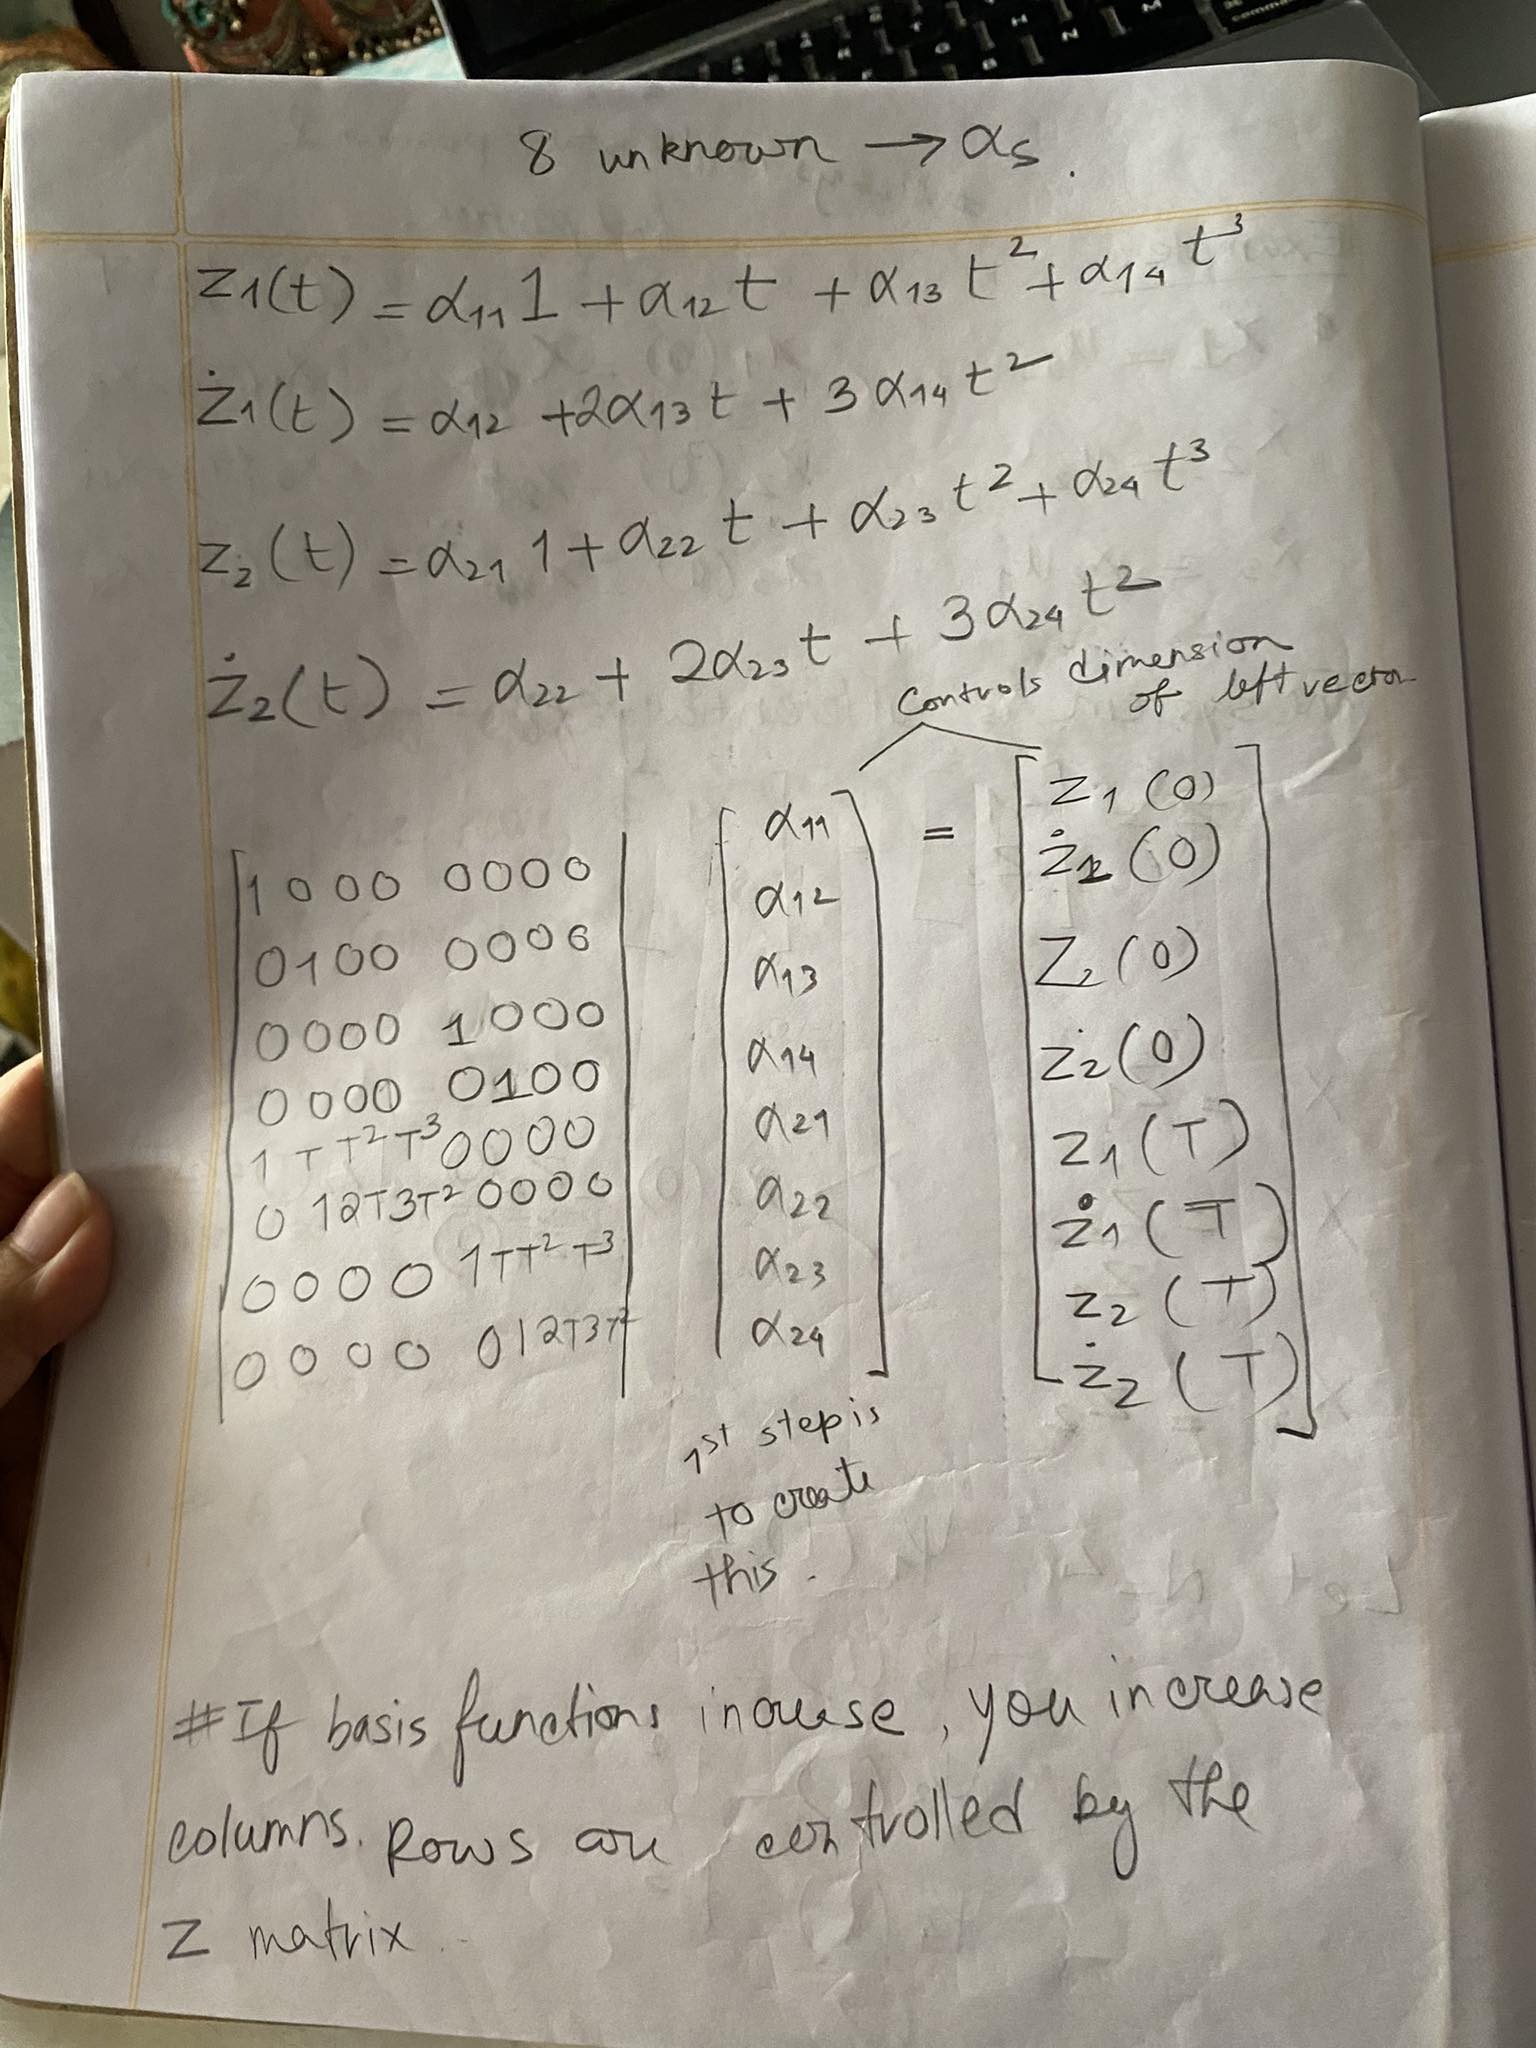 8 unknown → αs.
z1(t) = α11 1 + α12 t + α13 t² + α14 t³
ż1(t) = α12 + 2α13 t + 3 α14 t²
z2(t) = α21 1 + α22 t + α23 t² + α24 t³
ż2(t) = α22 + 2α23 t + 3 α24 t²
controls dimension
of left vector
1 0 0 0 0 0 0 0
0 1 0 0 0 0 0 0
0 0 0 0 1 0 0 0
0 0 0 0 0 1 0 0
1 T T² T³ 0 0 0 0
0 1 2T 3T² 0 0 0 0
0 0 0 0 1 T T² T³
0 0 0 0 0 1 2T 3T²
α11
α12
α13
α14
α21
α22
α23
α24
=
z1 (0)
ż1 (0)
z2 (0)
ż2 (0)
z1 (T)
ż1 (T)
z2 (T)
ż2 (T)
1st step is
to create
this.
#If basis functions increase, you increase
columns. Rows are controlled by the
Z matrix.